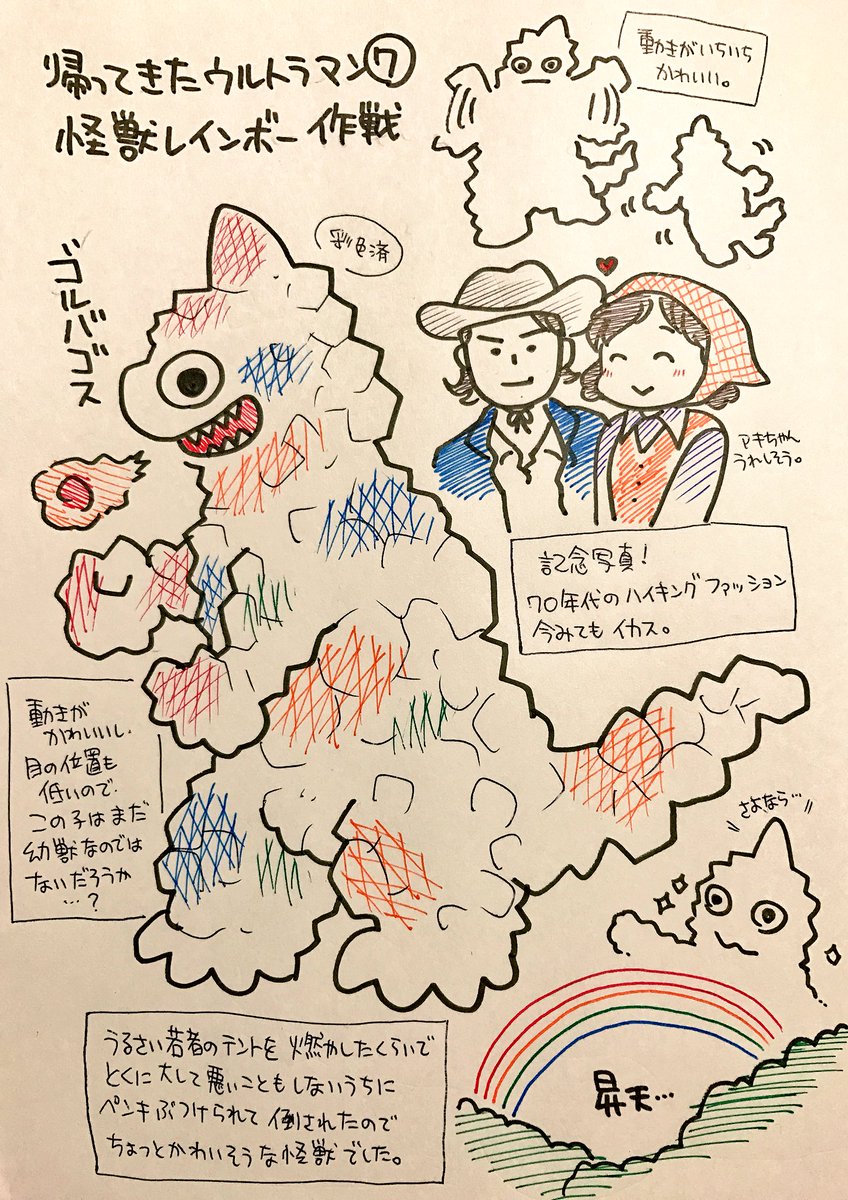 帰ってきたウルトラマン⑦
怪獣レインボー作戦
動きがいちいち
かわいい。
彩色済
ゴルバゴス
アキちゃん
うれしそう。
記念写真!
70年代のハイキングファッション
今みてもイカス。
動きが
かわいいし、
目の位置も
低いので、
この子はまだ
幼獣なのでは
ないだろうか
…?
さよなら…
昇天…
うるさい若者のテントを燃やしたくらいで
とくに大して悪いこともしないうちに
ペンキぶつけられて倒されたので
ちょっとかわいそうな怪獣でした。